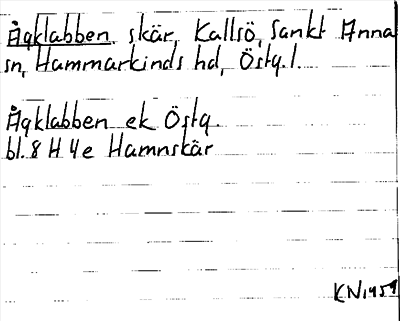 Ågklabben, skär, Kallsö, Sankt Anna
sn, Hammarkinds hd, Östg.l.
Ågklabben ek Östg.
bl. 8 H 4e Hamnskär
KN, 1959